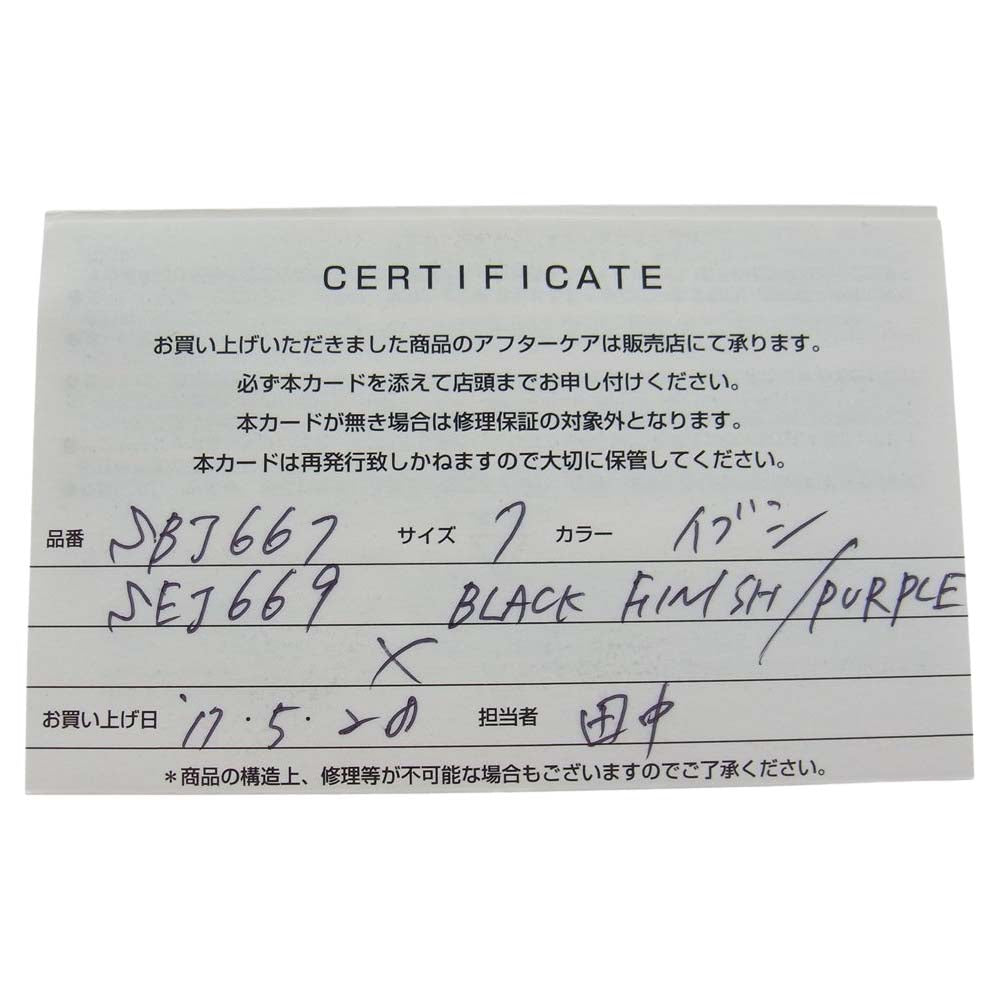 CERTIFICATE
お買い上げいただきました商品のアフターケアは販売店にて承ります。
必ず本カードを添えて店頭までお申し付けください。
本カードが無き場合は修理保証の対象外となります。
本カードは再発行致しかねますので大切に保管してください。
品番 SBJ667 サイズ 7 カラー イブシ
SEJ669 BLACK FINISH/PURPLE
×
お買い上げ日 '17・5・28 担当者 田中
*商品の構造上、修理等が不可能な場合もございますのでご了承ください。